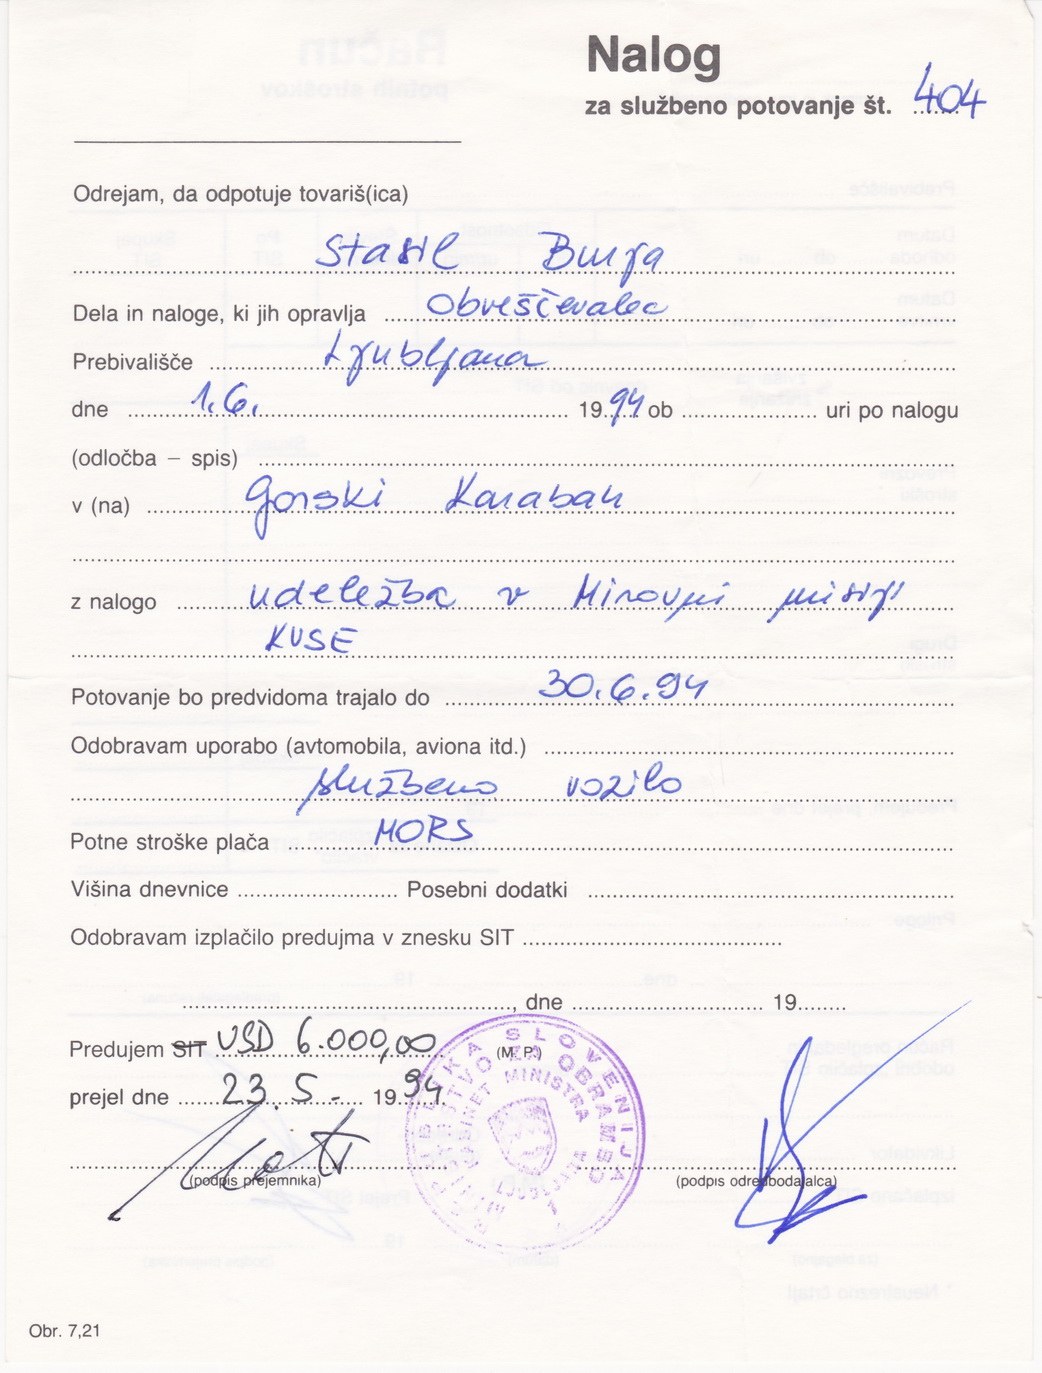 Nalog
za službeno potovanje št. 404
Odrejam, da odpotuje tovariš(ica)
Stasil Burja
Dela in naloge, ki jih opravlja Obveščevalec
Prebivališče Ljubljana
dne 1.6. 1994 ob uri po nalogu
(odločba – spis)
v (na) Gorski Karabah
z nalogo udeležba v Mirovni misiji
KVSE
Potovanje bo predvidoma trajalo do 30.6.94
Odobravam uporabo (avtomobila, aviona itd.)
službeno vozilo
Potne stroške plača MORS
Višina dnevnice Posebni dodatki
Odobravam izplačilo predujma v znesku SIT
, dne 19
Predujem SIT USD 6.000,00 (M. P.)
prejel dne 23.5.- 1994.
(podpis prejemnika) (podpis odredbodajalca)
REPUBLIKA SLOVENIJA
MINISTRSTVO ZA OBRAMBO
KABINET MINISTRA
Obr. 7,21